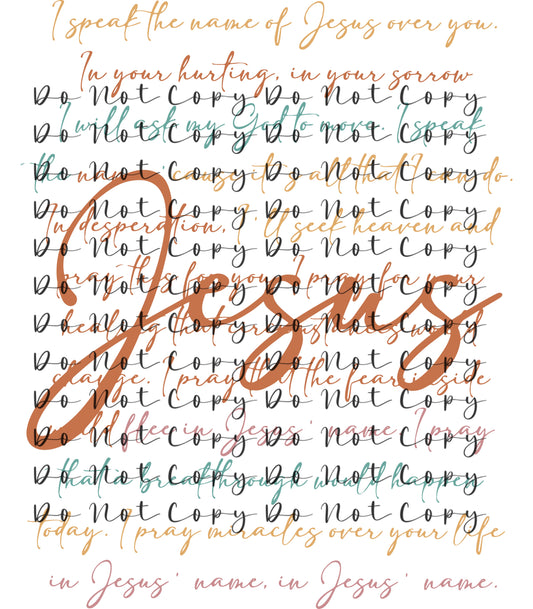 I speak the name of Jesus over you.
In your hurting, in your sorrow
Do Not Copy Do Not Copy
I will ask my God to move. I speak
Do Not Copy Do Not Copy
the name 'cause it's all that I can do.
Do Not Copy Do Not Copy
Do Not Copy Do Not Copy
In desperation, I'll seek heaven and
Do Not Copy Do Not Copy
Do Not Copy Do Not Copy
pray this for you. I pray for your
Jesus
Do Not Copy Do Not Copy
healing that circumstances would
Do Not Copy Do Not Copy
Do Not Copy Do Not Copy
change. I pray that the fear inside
Do Not Copy Do Not Copy
would flee in Jesus' name I pray
Do Not Copy Do Not Copy
that a breakthrough would happen
Do Not Copy Do Not Copy
Do Not Copy Do Not Copy
today. I pray miracles over your life
in Jesus' name, in Jesus' name.